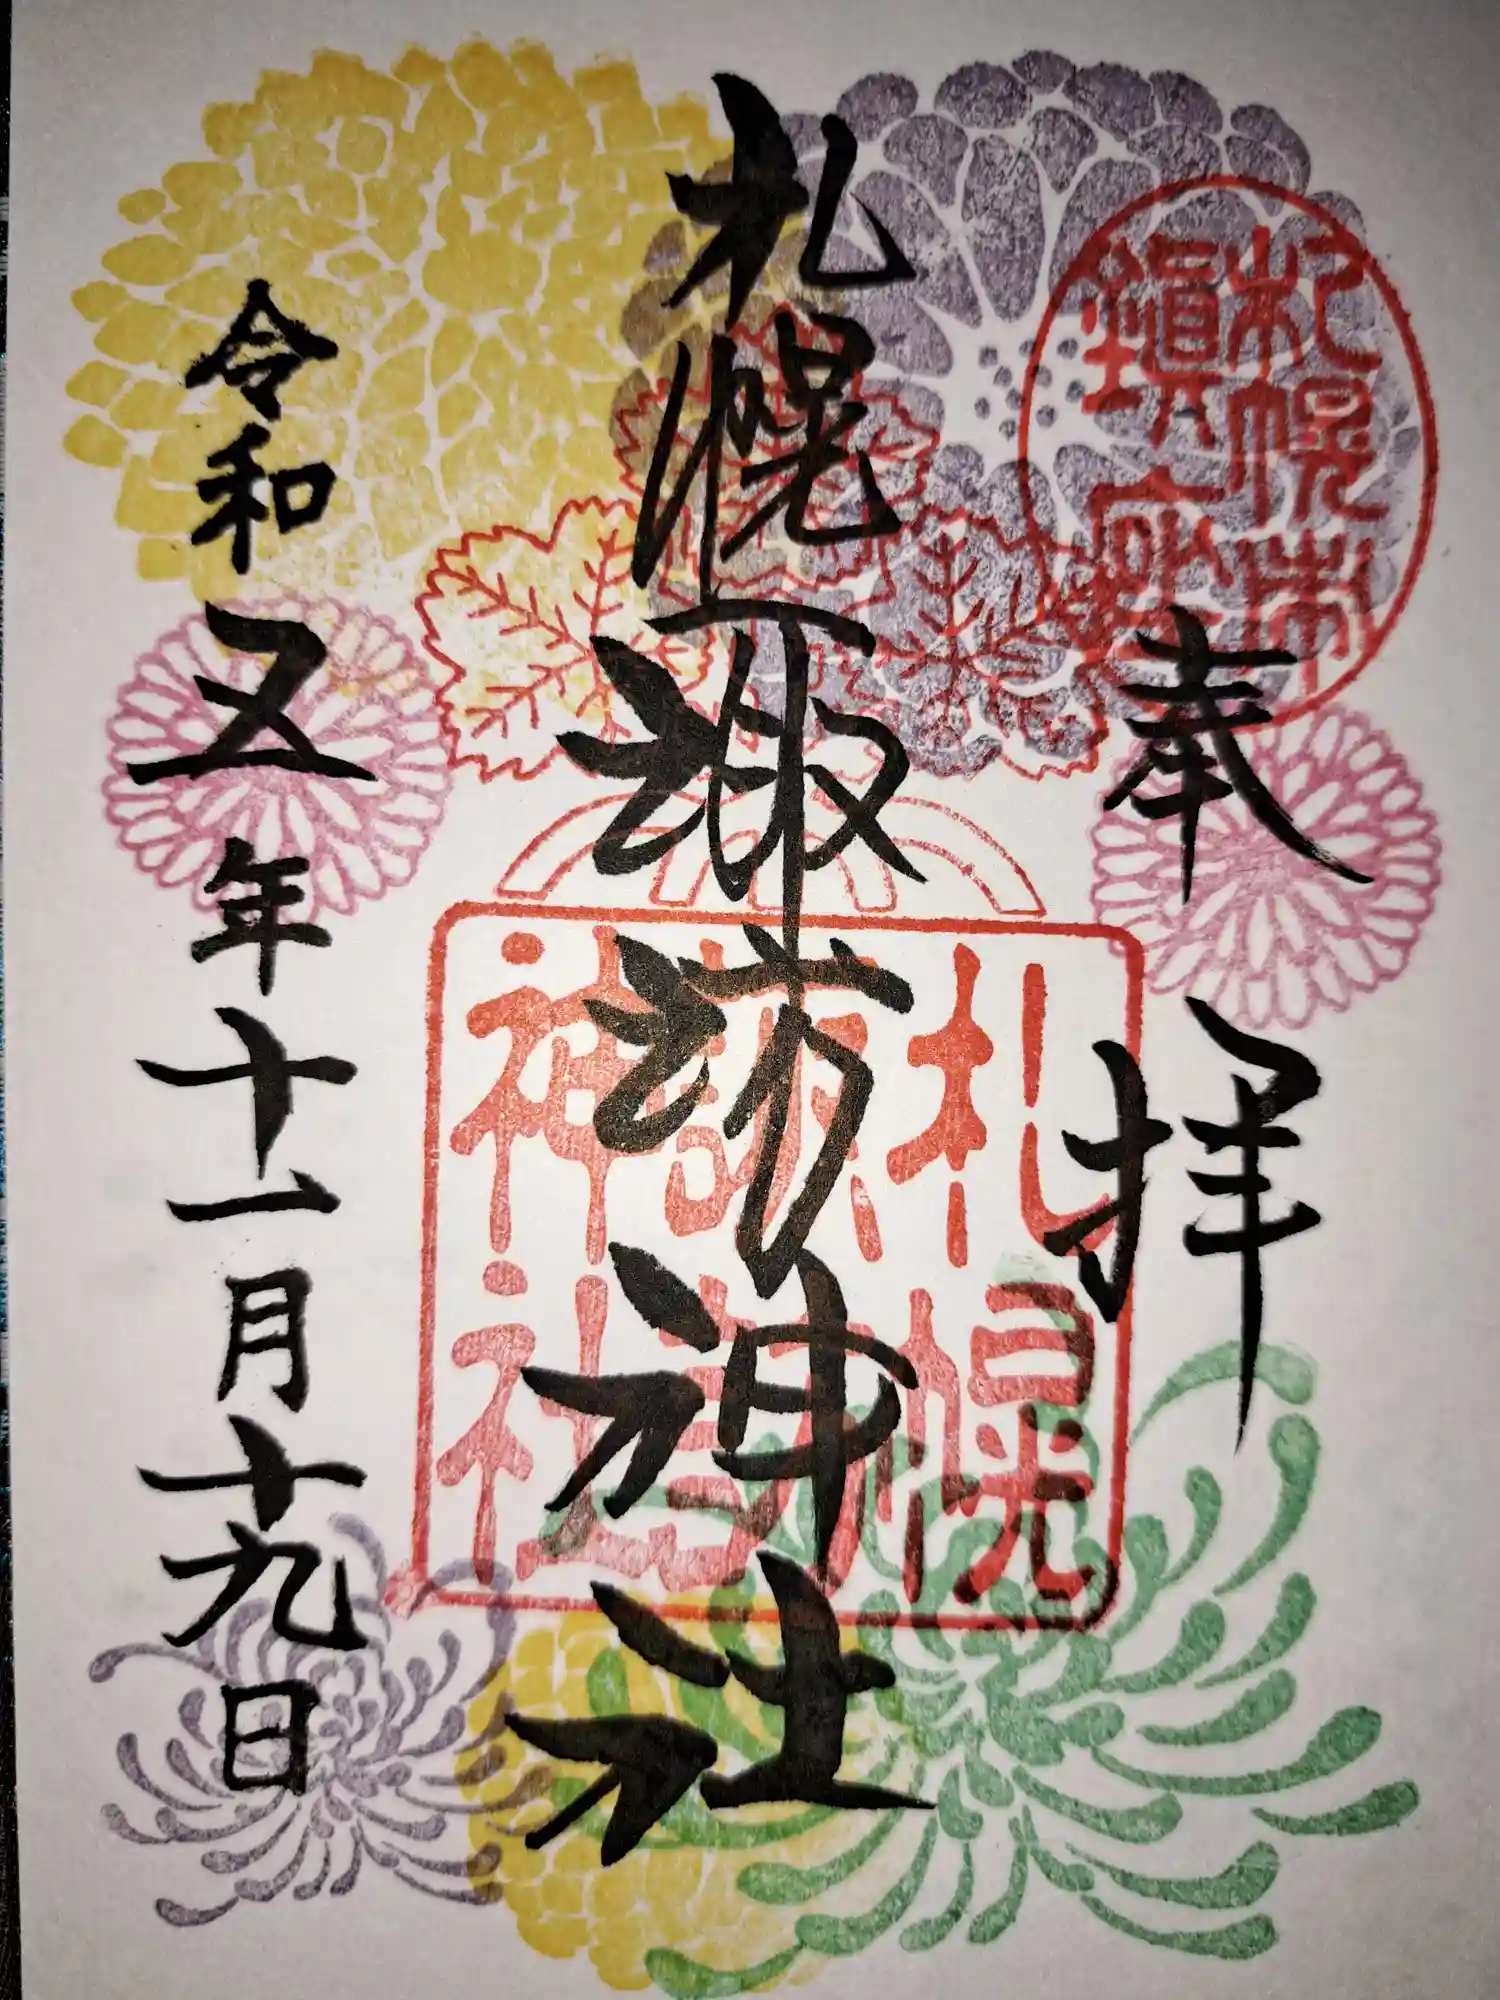 奉拝
札幌市
鎮座
札幌諏訪神社
札幌
諏訪
神社
令和五年十一月十九日